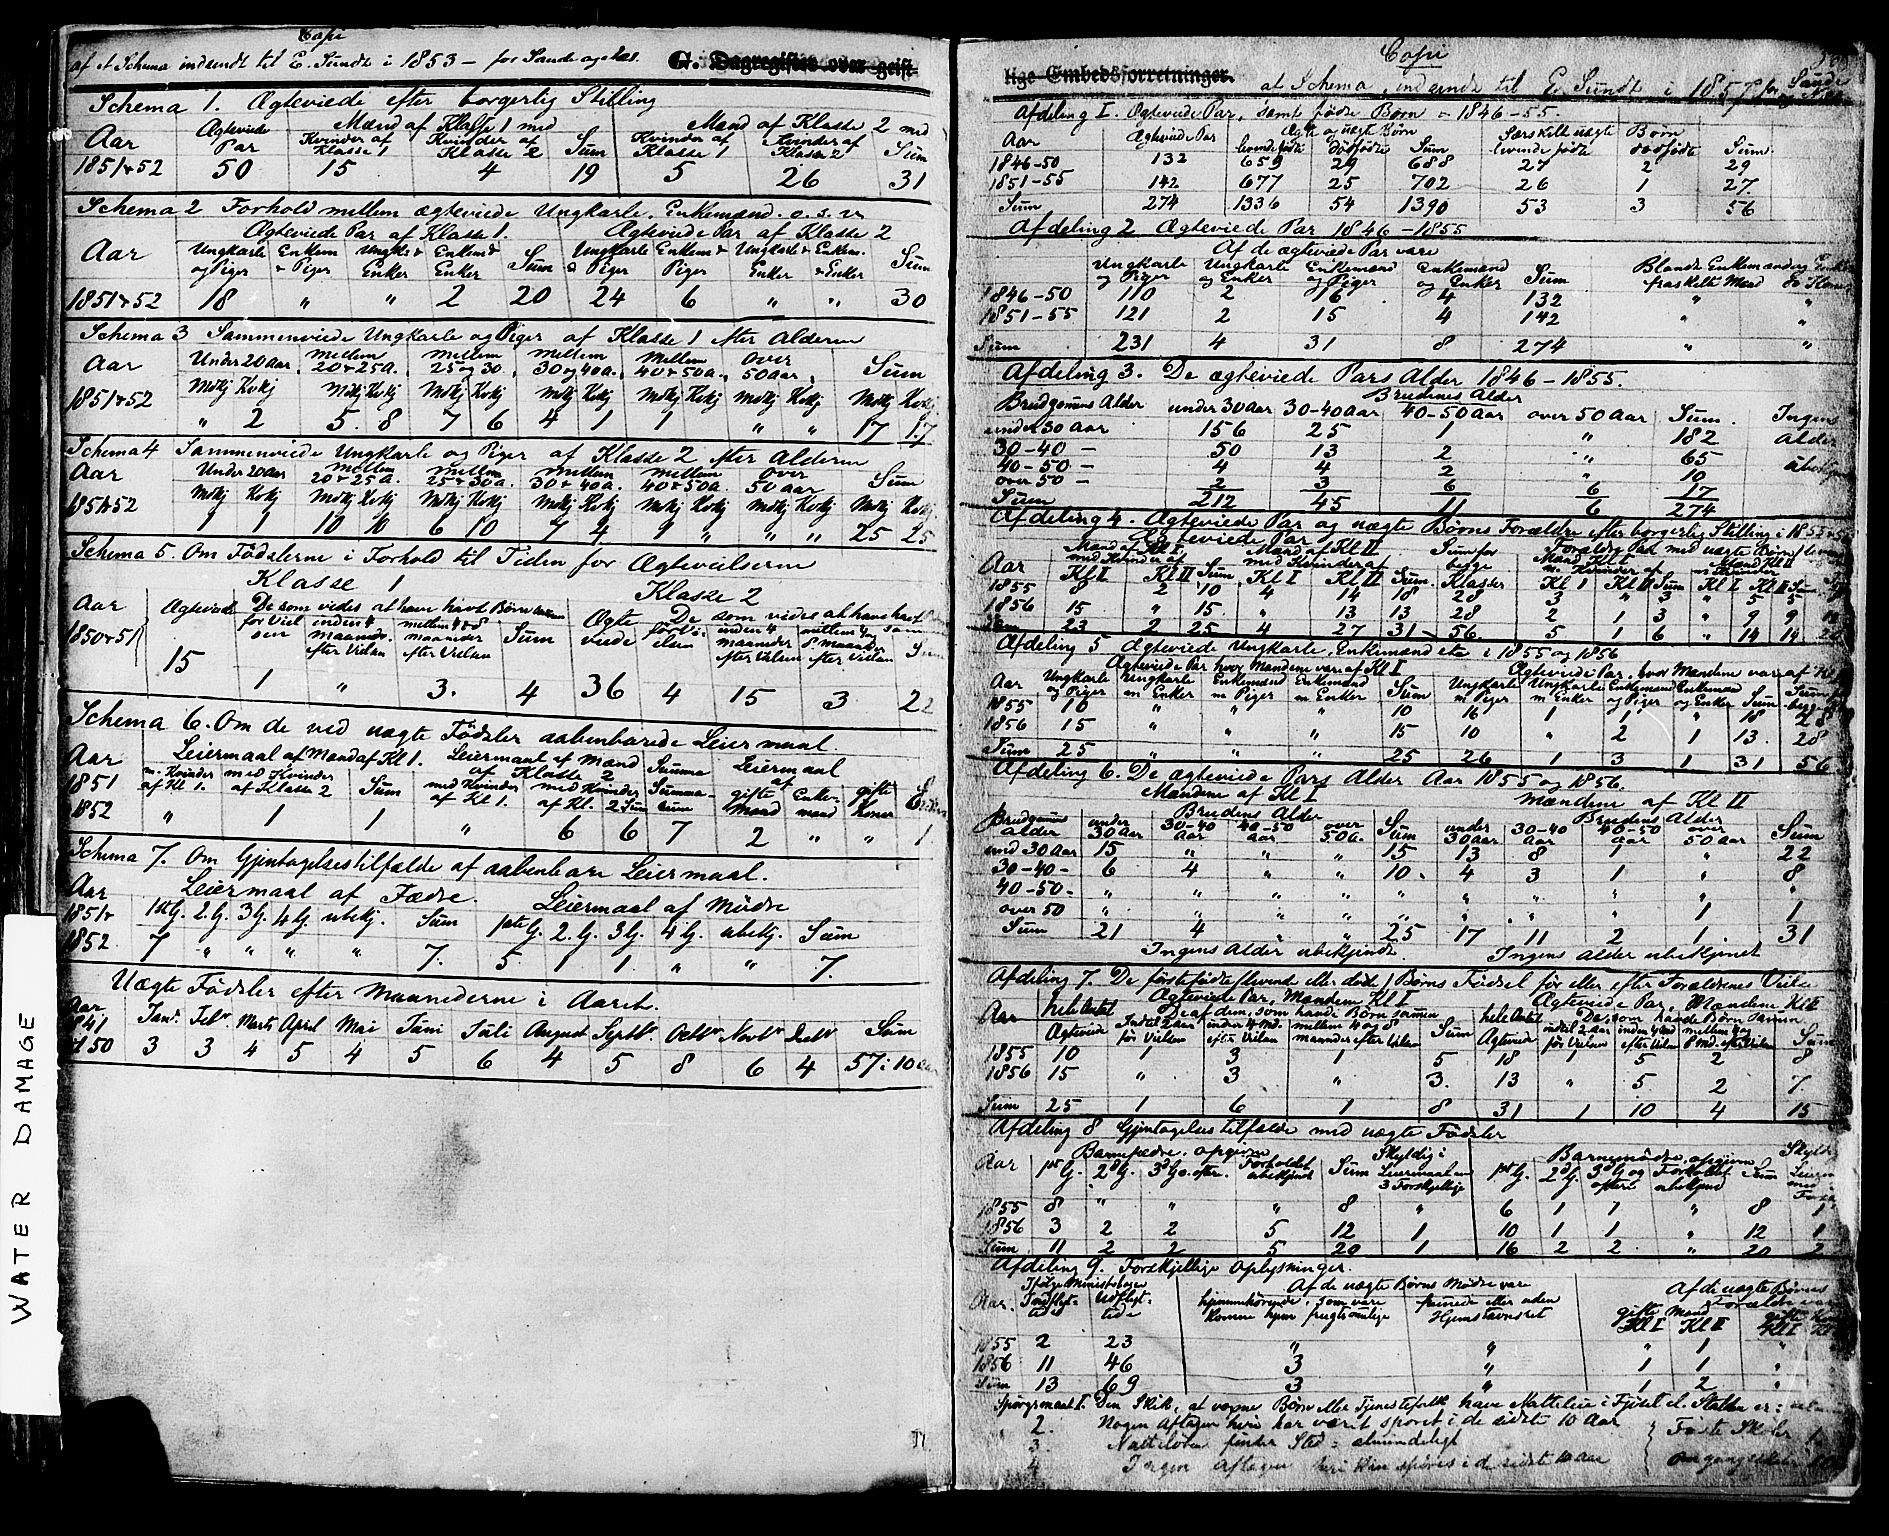 Copi
af et Schema indsendt til E. Sundt i 1853 – for Sande
G. Dagregister over geist-
Schema 1. Ægteviede efter borgerlig Stilling
Aar Ægteviede Par Mænd af Klasse 1 med Mænd af Klasse 2 med
Kvinder af Klasse 1 Kvinder af Klasse 2 Sum Kvinder af Klasse 1 Kvinder af Klasse 2 Sum
1851 & 52 50 15 4 19 5 26 31
Schema 2 Forhold mellem ægteviede Ungkarle, Enkemænd o.s.v.
Ægteviede Par af Klasse 1. Ægteviede Par af Klasse 2
Aar Ungkarle og Piger Enkem & Piger Ungk. & Enker Enkem & Enker Sum Ungkarle & Piger Enkem & Piger Ungkarle & Enker Enkem. & Enker Sum
1851 & 52 18 " " 2 20 24 6 " " 30
Schema 3 Sammenviede Ungkarle og Piger af Klasse 1 efter Alderen
Aar Under 20 Aar Mellem 20 & 25 A. Mellem 25 og 30 Mellem 30 og 40 a. Mellem 40 & 50 a. Over 50 aar Sum
Mdkj Kvkj Mdkj Kvkj Mdkj Kvkj Mdkj Kvkj Mdkj Kvkj Mdkj Kvkj Mdkj Kvkj
1851 & 52 " 2 5 8 7 6 4 1 1 " " 17 17
Schema 4 Sammenviede Ungkarle og Piger af Klasse 2 efter Alderen
Aar Under 20 aar Mellem 20 & 25 a. Mellem 25 & 30 a. Mellem 30 & 40 a. Mellem 40 & 50 a. Over 50 aar Sum
Mdkj Kvkj Mdkj Kvkj Mdkj Kvkj Mdkj Kvkj Mdkj Kvkj Mdkj Kvkj Mdkj Kvkj
1851 & 52 1 1 10 10 6 10 7 4 1 " " " 25 25
Schema 5. Om Fødslerne i Forhold til Tiden for Ægtevielserne
Klasse 1 Klasse 2
Aar Ægteviede De som vides at have havt Børn Ægteviede De som vides at have havt
før Viel sen inden 4 maaneder efter Vielsen mellem 4 & 8 maaneder efter Vielsen Sum før Vielsen inden 4 maaneder efter Vielsen mellem 4 og 8 maaneder efter Vielsen Sum
1850 & 51 15 1 " 3. 4 36 4 15 3 22
Schema 6. Om de ved uægte Fødsler aabenbarede Leiermaal.
Aar Leiermaal af Mænd af Kl 1. Leiermaal af Mænd af Klasse 2 Summa Leiermaal af
1851 m. Kvinder af Kl 1. med Kvinder af Klasse 2 Sum med Kvinder af Kl 1. med Kvinder af Kl. 2 Sum gifte Mænd Enkemænd gifte Koner
1852 " 1 1 " 6 6 7 2 " " 1
Schema 7. Om Gjentagelsestilfælde af aabenbare Leiermaal.
Aar Leiermaal af Fædre. Leiermaal af Mødre
1851 & 1st G. 2. G. 3 G. 4 G. ubekj. Sum 1ste G. 2. G. 3 G. 4 G. ubekj. Sum
1852 7 " " " " 7. 5 1 1. " " 7.
Uægte Fødsler efter Maanederne i Aaret.
Aar Janr. Febr Marts April Mai Juni Juli August Septbr Octbr Novbr Decbr Sum
1841
til 50 3 3 4 5 4 5 6 4 5 8 6 4 57 i 10 aar
WATER DAMAGE
Copi
lige Embedsforretninger.
at Schema, indsendt til E. Sundt i 1857 for Sande
Afdeling I. Ægteviede Par, samt fødte Børn – 1846-55.
Aar Ægteviede Par Ægte og uægte Børn Særskilt uægte Børn
levende fødte dødfødte Sum levende fødte dødfødte Sum
1846-50 132 659 29 688 27 2 29
1851-55 142 677 25 702 26 1 27
Sum 274 1336 54 1390 53 3 56
Afdeling 2 Ægteviede Par 1846-1855
Af de ægteviede Par vare
Ungkarle og Piger Ungkarle og Enker Enkemænd og Piger Enkemænd og Enker Sum Blandt Enkemænd og Enker fraskilte Mænd
1846-50 110 2 16 4 132 " "
1851-55 121 2 15 4 142 " "
Sum 231 4 31 8 274 " "
Afdeling 3. De ægteviede Pars Alder 1846-1855.
Brudenes Alder
Brudgommens Alder under 30 Aar 30-40 aar 40-50 aar over 50 Aar Sum Ingens
under 30 aar 156 25 1 " 182 Alder
30-40 – 50 13 2 " 65
40-50 – 4 4 2 " 10
over 50 – 2 3 6 6 17
Sum 212 45 11 6 274
Afdeling 4. Ægteviede Par og uægte Børns Forældre efter borgerlig Stilling i 1855 & 56
Ægteviede Par Forældre Par med uægte Børn
Mænd af Kl I med Kvinder af Mænd af Kl II med Kvinder af Sum for begge Klasser
Aar Kl I Kl II Sum Kl I Kl II Sum Kl I Kl II Sum Kl I Kl II
1855 8 2 10 4 14 18 28 3 " 3 " 5 5
1856 15 " 15 " 13 13 28 2 1 3 " 9 9
Sum 23 2 25 4 27 31 56 5 1 6 " 14 14 20
Afdeling 5 Ægteviede Ungkarle, Enkemænd etc i 1855 og 1856
Ægteviede Par hvor Mændene var af Kl I Ægteviede Par, hvor Mændene var af Kl II
Aar Ungkarle og Piger Ungkarle m Enker Enkemænd m Piger Enkemænd m Enker Sum Ungkarle m Piger Ungkarle m Enker Enkemænd og Piger Enkemænd og Enker Sum
1855 10 " " " 10 16 1 1 " 18 28
1856 15 " " " 15 10 " 2 1 13. 28
Sum 25 " " " 25 26 1 3 1 31 56
Afdeling 6. De ægteviede Pars Alder Aar 1855 og 1856.
Mændene af Kl I Mændene af Kl II
Brudens Alder Brudens Alder
Brudgoms alder under 30 Aar 30-40 aar 40-50 aar over 50 a. Sum under 30 aar 30-40 Aar 40-50 aar over 50 aar Sum
und 30 Aar 15 " " " 15 13 8 1 " 22
30-40- 6 4 " " 10. 4 3 1 " 8
40-50- " " " " " " " " " "
over 50 " " " " " " " " 1 1
Sum 21 4 " " 25 17 11 2 1. 31
Ingens Alder ubekjendt. Ingens alder ubekjent
Afdeling 7. De førstefødte (levende eller døde) Børns Fødsel før eller efter Forældrenes Vielse
Ægteviede Par, Mændene Kl I Ægteviede Par, Mændene Kl II
Aar hele Antal Ægteviede De af dem, som havde Børn sammen hele Antal Ægteviede De, som havde Børn sammen
Indtil 2 aar før Vielsen inden 4 Md. efter Vielsen mellem 4 og 8 maaneder efter Vielsen Sum indtil 2 aar før Vielsen inden 4 Md efter Vielsen mellem 4 og 8 Md. efter Vielsen Sum
1855 10 1 3 1 5 18 1 5 2 8
1856 15 " 3 " 3. 13 " 5 2 7
Sum 25 1 6 1 8 31 1 10 4 15
Afdeling 8 Gjentagelsestilfælde med uægte Fødsler
Aar Barnefædre, opgivne Skyldig i Leiermaal m 3 Forskjellige Barnemødre, opgivne
1ste G. 2d G. 3d G. o efter. Forholdet ubekjendt Sum 1ste G. 2d G. 3d G og efter Forholdet ubekjend Sum
1855 8 " " " 8 " 6 1 1 " 8 1
1856 3 2 2 5 12 1 10 1 1 " 12 1
Sum 11 2 2 5 20 1 16 2 2. " 20 2
Afdeling 9. Forskjellige Oplysninger.
Aar. Indflyttede Udflyttede Af de uægte Børns Mødre vare Af de uægte Børns Forældre
hjemmehørende, som vare komne hjem frugtsomlige fremmede eller uden Hjemstavnsret gifte Mænd
Kl I Kl II Kl I Kl
1855 2 23 " " " 1 "
1856 11 46 3 " 1 1 "
Sum 13 69 3 " 1 2 "
Spørgsmaal 1. Den Skik, at voxne Børn eller Tjenestefolk have Natteleie i Fjøset el. Stalden er:
2. Nogen Aftagen heri har været sporet i de sidste 10 Aar Faste Skoler 1
3. Natteløben finder Sted = almindeligt
4 Ingen Aftagen heri kan spores i de sidste 10 Aar Omgangsskoler